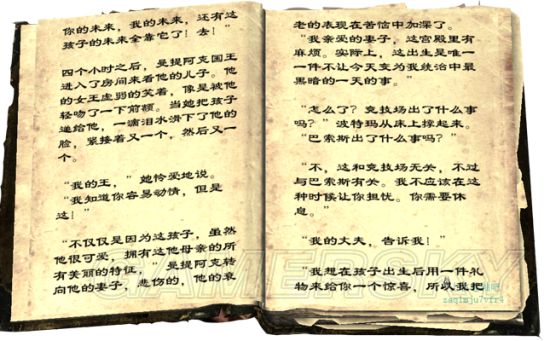 你的未来，我的未来，还有这
孩子的未来全靠它了！去！”
四个小时之后，曼提阿克国王
进入了房间来看他的儿子。他
的女王虚弱的笑着，像是被他
轻吻了一下前额。当她把孩子
递给他，一滴泪水滑下了他的
脸，紧接着又一个，然后又一
个。
“我的王，”她怜爱地说。
“我知道你容易动情，但是
这！”
“不仅仅是因为这孩子，虽然
他很可爱，拥有这他母亲的所
有美丽的特征。”曼提阿克转
向他的妻子，悲伤的，他的衰
老的表现在苦恼中加深了。
“我亲爱的妻子，这宫殿里有
麻烦。实际上，这出生是唯一
一件不让今天变为我统治中最
黑暗的一天的事。”
“怎么了？竞技场出了什么事
吗？”波特玛从床上撑起来。
“巴索斯出了什么事吗？”
“不，这和竞技场无关，不过
与巴索斯有关。我不应该在这
种时候让你担忧。你需要休
息。”
“我的大夫，告诉我！”
“我想在孩子出生后用一件礼
物来给你一个惊喜，所以我把
GAMERSKY
zaqtmju7vfr4